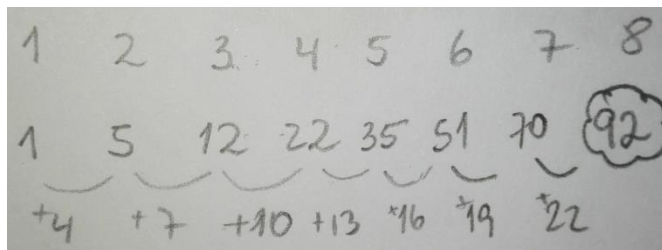 1 2 3. 4 5 6 7 8
1 5 12 22 35 51 70 92
+4 +7 +10 +13 +16 +19 +22